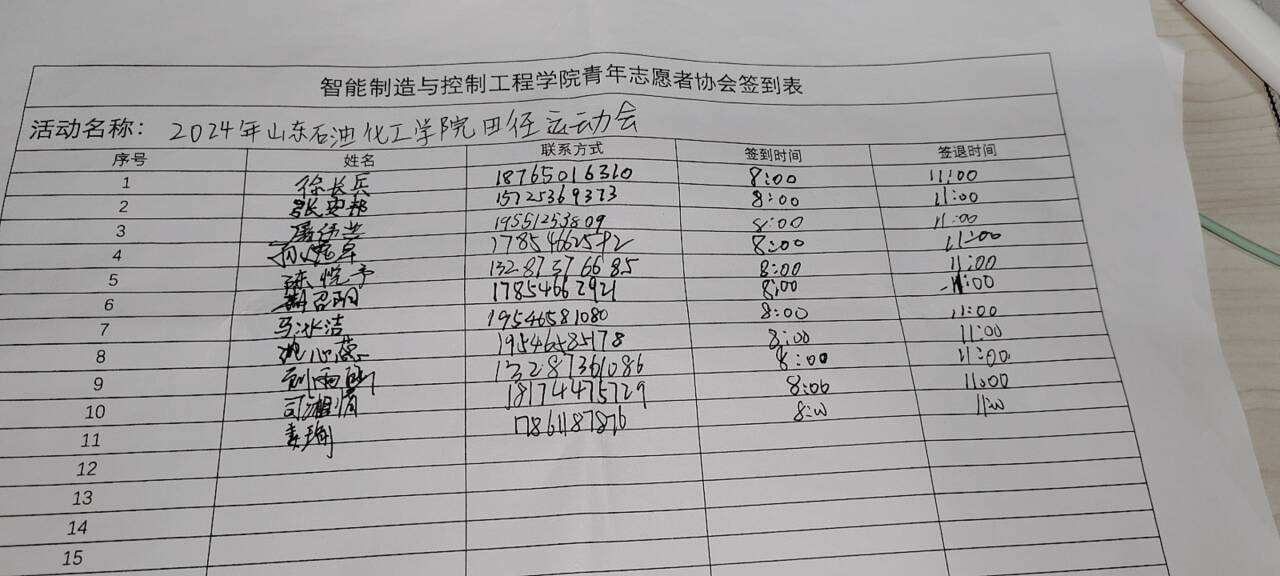 智能制造与控制工程学院青年志愿者协会签到表
活动名称: 2024年山东石油化工学院田径运动会
序号 姓名 联系方式 签到时间 签退时间
1 徐长兵 18765016310 8:00 11:00
2 张安邦 15725369373 8:00 11:00
3 19551253809 8:00 11:00
4 8:00 11:00
5 陈悦予 13287376685 8:00 11:00
6 17854662921 8:00 11:00
7 马冰洁 19546581080 8:00 11:00
8 沈心蕊 19546585178 8:00 11:00
9 13287361086 8:00 11:00
10 18174475729 8:00 11:00
11 姜珊 17861187876 8:00 11:00
12
13
14
15